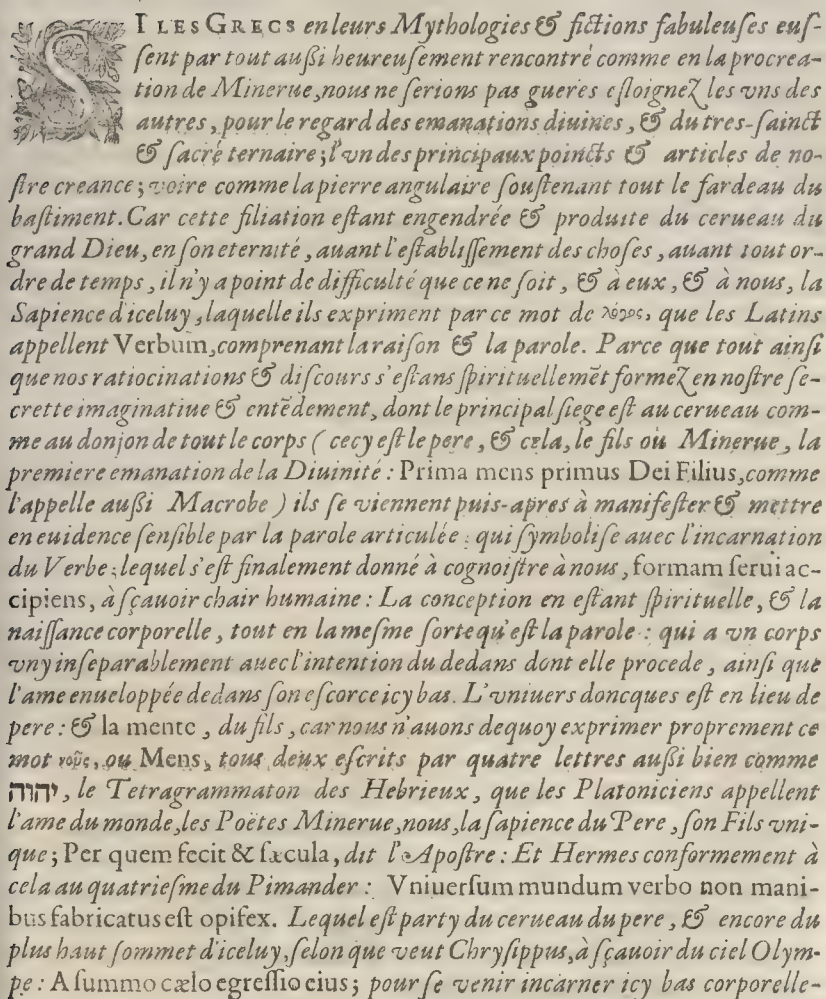 SI LES GRECS en leurs Mythologies & fictions fabuleuſes euſ-
ſent par tout außi heureuſement rencontré comme en la procrea-
tion de Minerue, nous ne ſerions pas gueres eſloignez les vns des
autres, pour le regard des emanations diuines, & du tres-ſainct
& ſacré ternaire; l'vn des principaux poincts & articles de no-
ſtre creance; voire comme la pierre angulaire ſouſtenant tout le fardeau du
baſtiment. Car cette filiation eſtant engendrée & produite du cerueau du
grand Dieu, en ſon eternité, auant l'eſtabliſſement des choſes, auant tout or-
dre de temps, il n'y a point de difficulté que ce ne ſoit, & à eux, & à nous, la
Sapience d'iceluy, laquelle ils expriment par ce mot de λόγος, que les Latins
appellent Verbum, comprenant la raiſon & la parole. Parce que tout ainſi
que nos ratiocinations & diſcours s'eſtans ſpirituellemēt formez en noſtre ſe-
crette imaginatiue & entēdement, dont le principal ſiege eſt au cerueau com-
me au donjon de tout le corps (cecy eſt le pere, & cela, le fils ou Minerue, la
premiere emanation de la Diuinité: Prima mens primus Dei Filius, comme
l'appelle außi Macrobe) ils ſe viennent puis-apres à manifeſter & mettre
en euidence ſenſible par la parole articulée: qui ſymboliſe auec l'incarnation
du Verbe; lequel s'eſt finalement donné à cognoiſtre à nous, formam ſerui ac-
cipiens, à ſçauoir chair humaine: La conception en eſtant ſpirituelle, & la
naiſſance corporelle, tout en la meſme ſorte qu'eſt la parole: qui a vn corps
vny inſeparablement auec l'intention du dedans dont elle procede, ainſi que
l'ame enueloppée dedans ſon eſcorce icy bas. L'vniuers doncques eſt en lieu de
pere: & la mente, du fils, car nous n'auons dequoy exprimer proprement ce
mot νοῦς, ou Mens, tous deux eſcrits par quatre lettres außi bien comme
יהוה, le Tetragrammaton des Hebrieux, que les Platoniciens appellent
l'ame du monde, les Poëtes Minerue, nous, la ſapience du Pere, ſon Fils vni-
que; Per quem fecit & ſæcula, dit l'Apoſtre: Et Hermes conformement à
cela au quatrieſme du Pimander: Vniuerſum mundum verbo non mani-
bus fabricatus eſt opifex. Lequel eſt party du cerueau du pere, & encore du
plus haut ſommet d'iceluy, ſelon que veut Chryſippus, à ſçauoir du ciel Olym-
pe: A ſummo cælo egreſſio eius; pour ſe venir incarner icy bas corporelle-